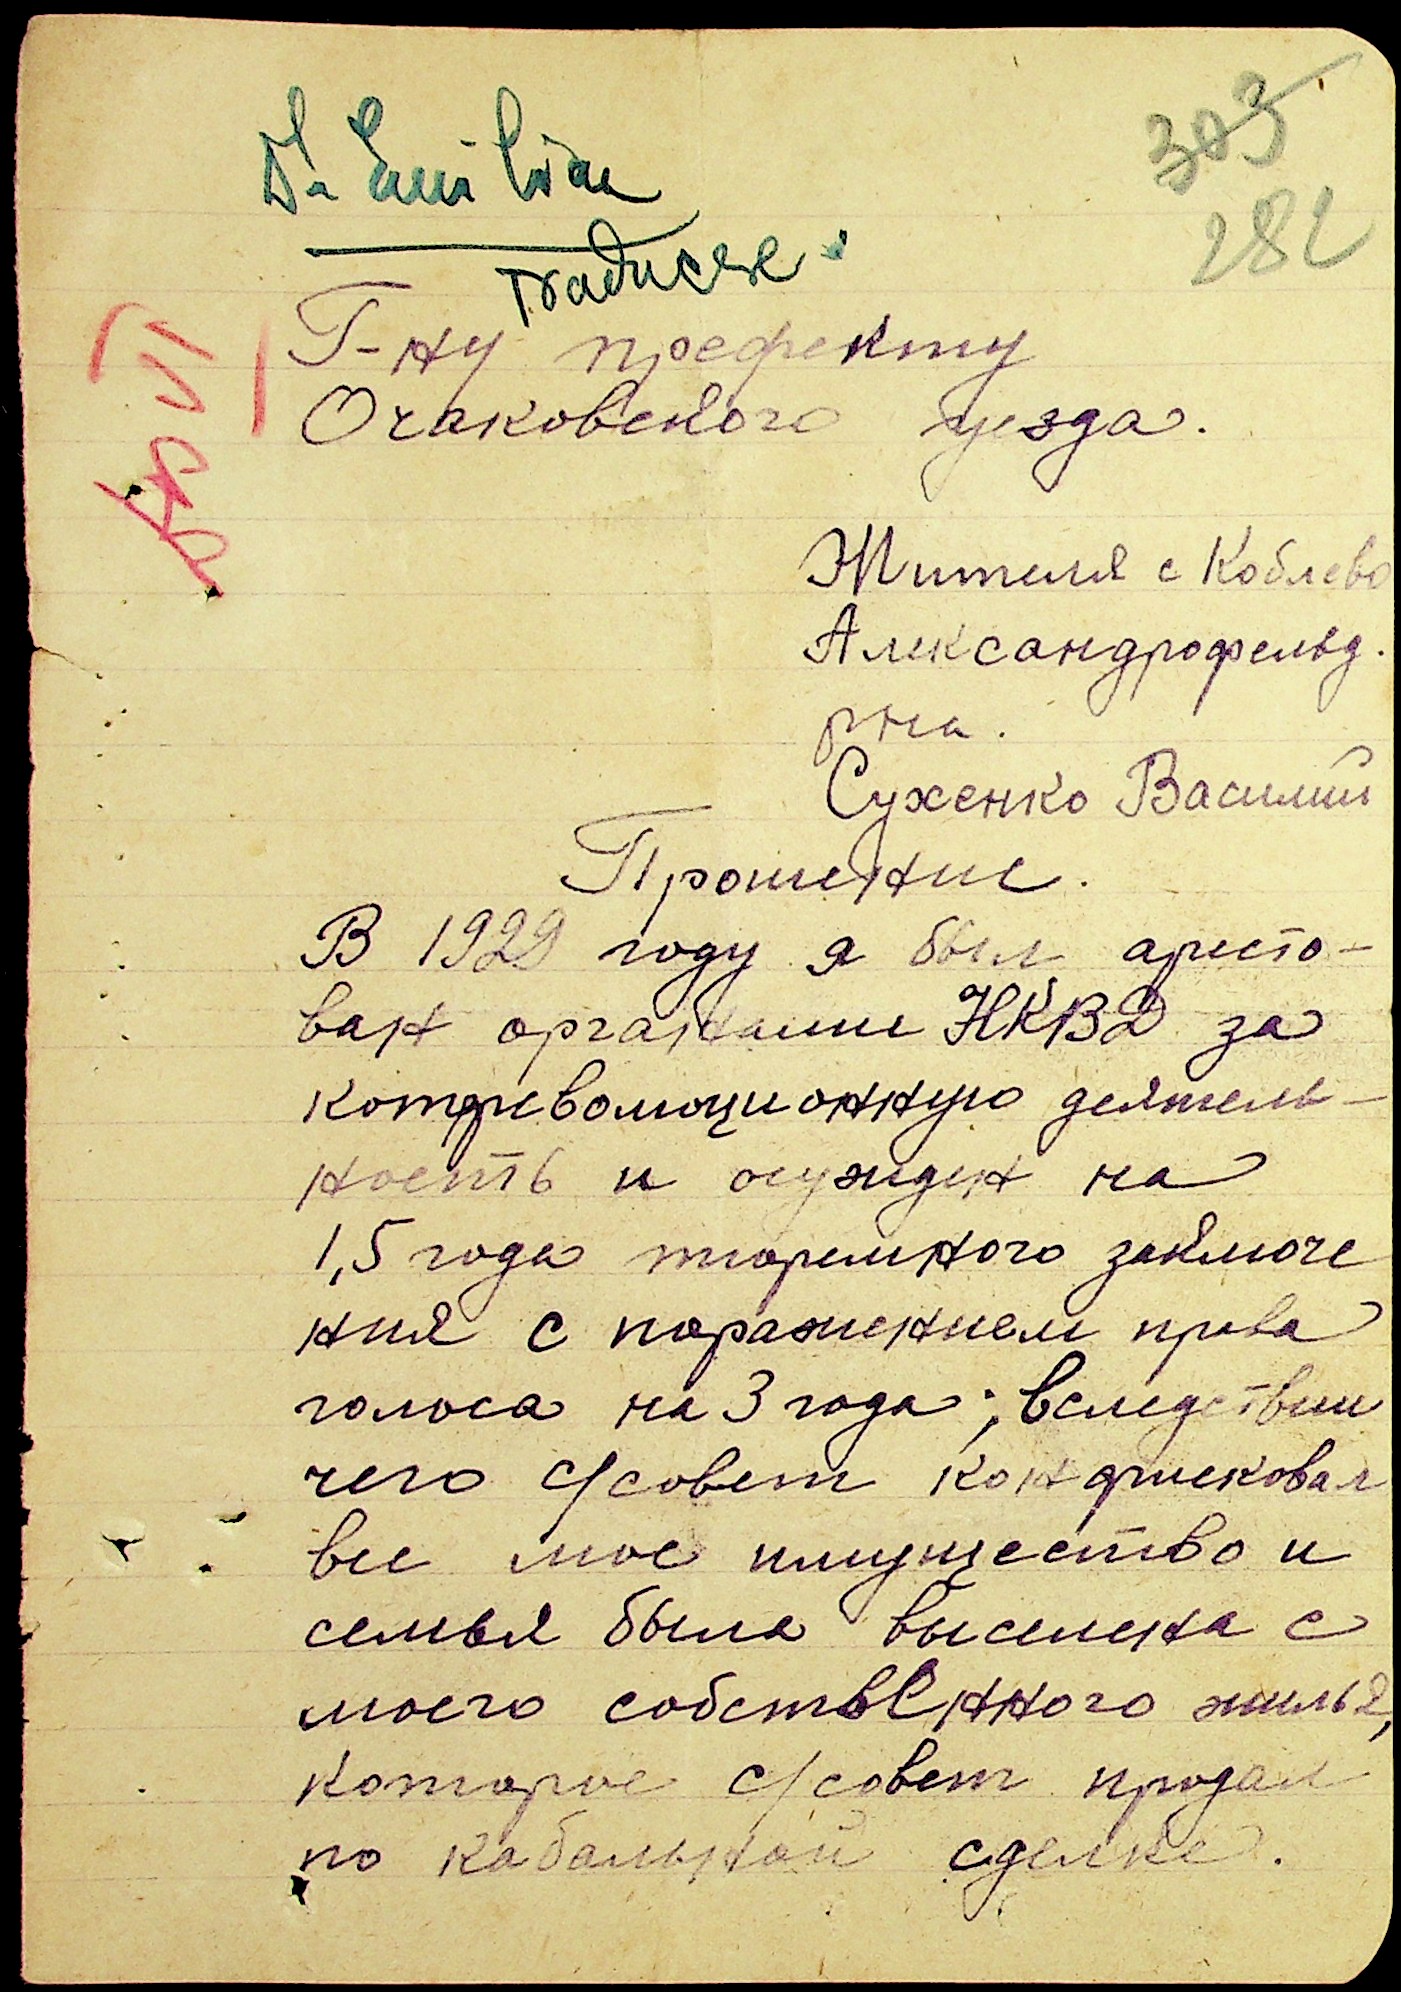 303
282
traducere
Г-ну префекту
Очаковского уезда.
Жителя с Коблево
Александрофельд.
р-на.
Сухенко Василий
Прошение.
В 1929 году я был аресто-
ван органами НКВД за
котрреволюционную деятель-
ность и осужден на
1,5 года тюремного заключе
ния с поражением права
голоса на 3 года; вследствии
чего с/совет конфисковал
все мое имущество и
семья была выселена с
моего собственного жилья,
которое с/совет продал
по кабальной сделке.